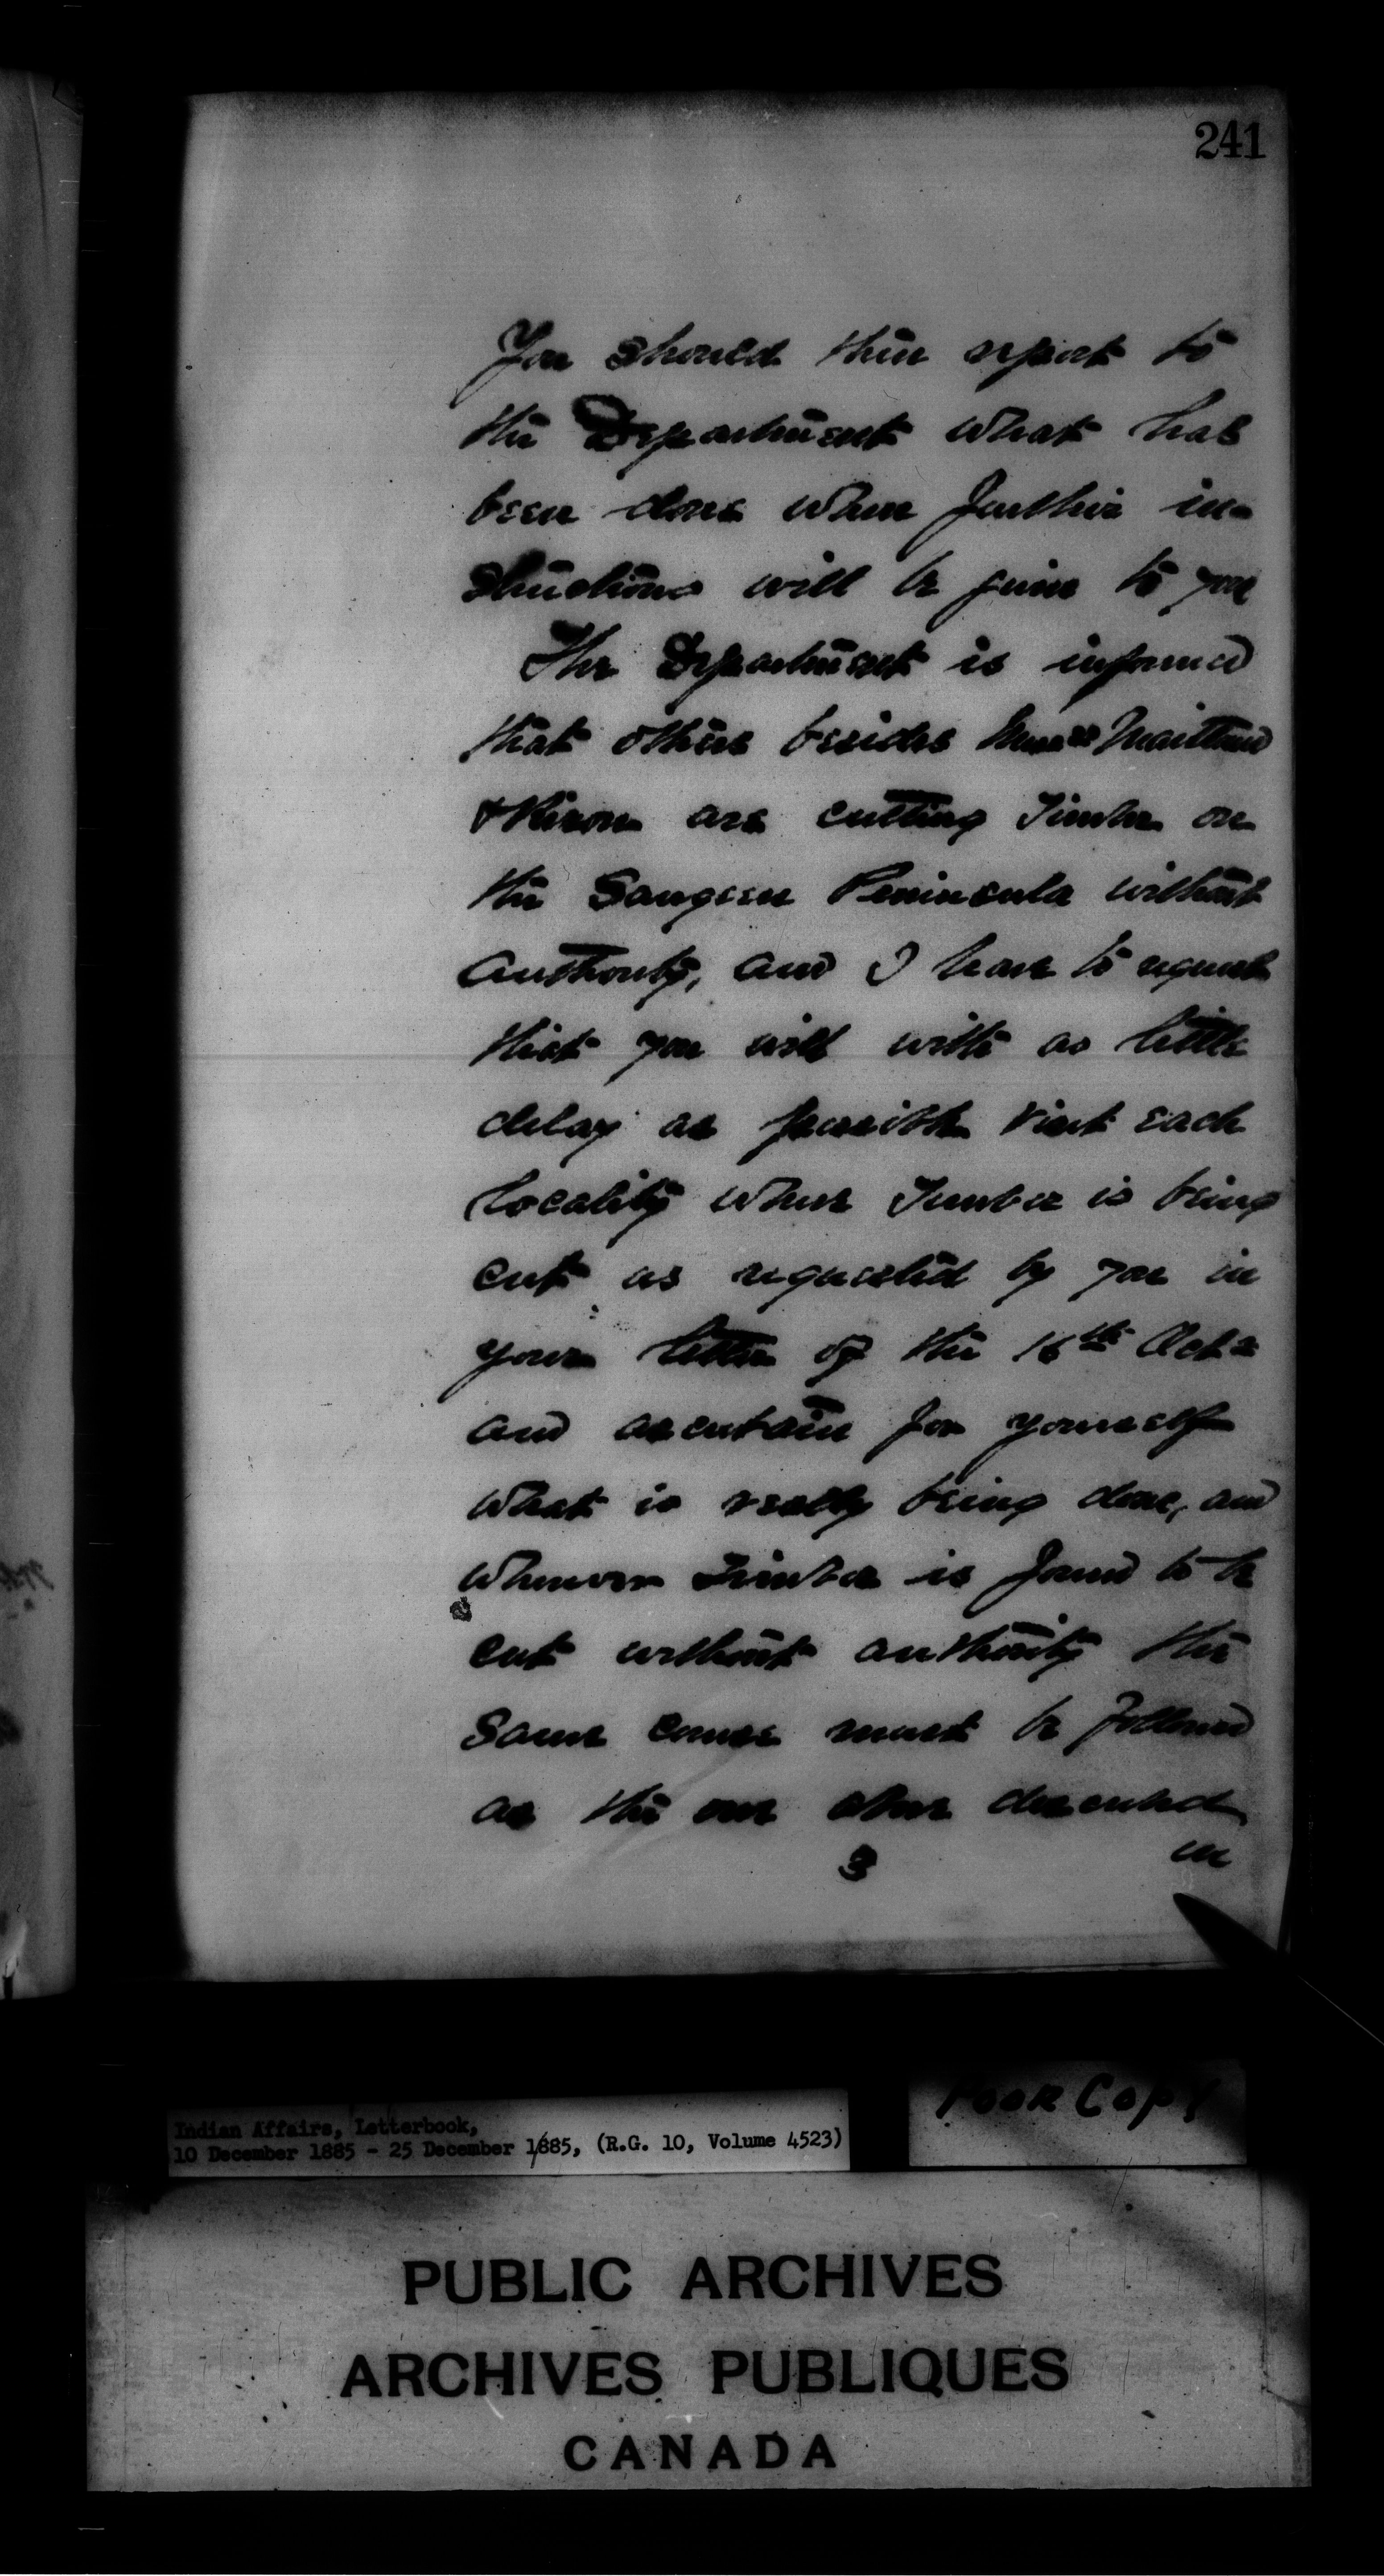 241
You should then report to
the Department what has
been done when further in-
structions will be given to you
The Department is informed
that others besides Mess<sup>rs</sup> Maitland
& Rixon are cutting Timber on
the Saugeen Peninsula without
authority, and I have to request
that you will with as little
delay as possible visit each
locality where Timber is being
cut as requested by you in
your letter of the 16th Oct<sup>r</sup>
and ascertain for yourself
what is really being done, and
whenever Timber is found to be
cut without authority the
same course must be followed
as the one above described
3 in
POOR COPY
Indian Affairs, Letterbook,
10 December 1885 - 25 December 1885, (R.G. 10, Volume 4523)
PUBLIC ARCHIVES
ARCHIVES PUBLIQUES
CANADA